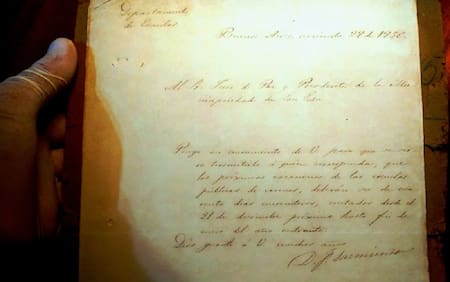 Departamento
de Escuelas
Buenos Aires, noviembre 28 de 1856.
Al Sr. Juez de Paz y Presidente de la Mu
nicipalidad de San
Pongo en conocimiento de V. para que se sirva
transmitirlo á quien corresponda, que
las próximas vacaciones de las escuelas
públicas de varones, deberán ser de cua
renta dias consecutivos, contados desde el
21 de diciembre próximo hasta fin de
enero del año entrante.
Dios guarde á V. muchos años
D. F. Sarmiento